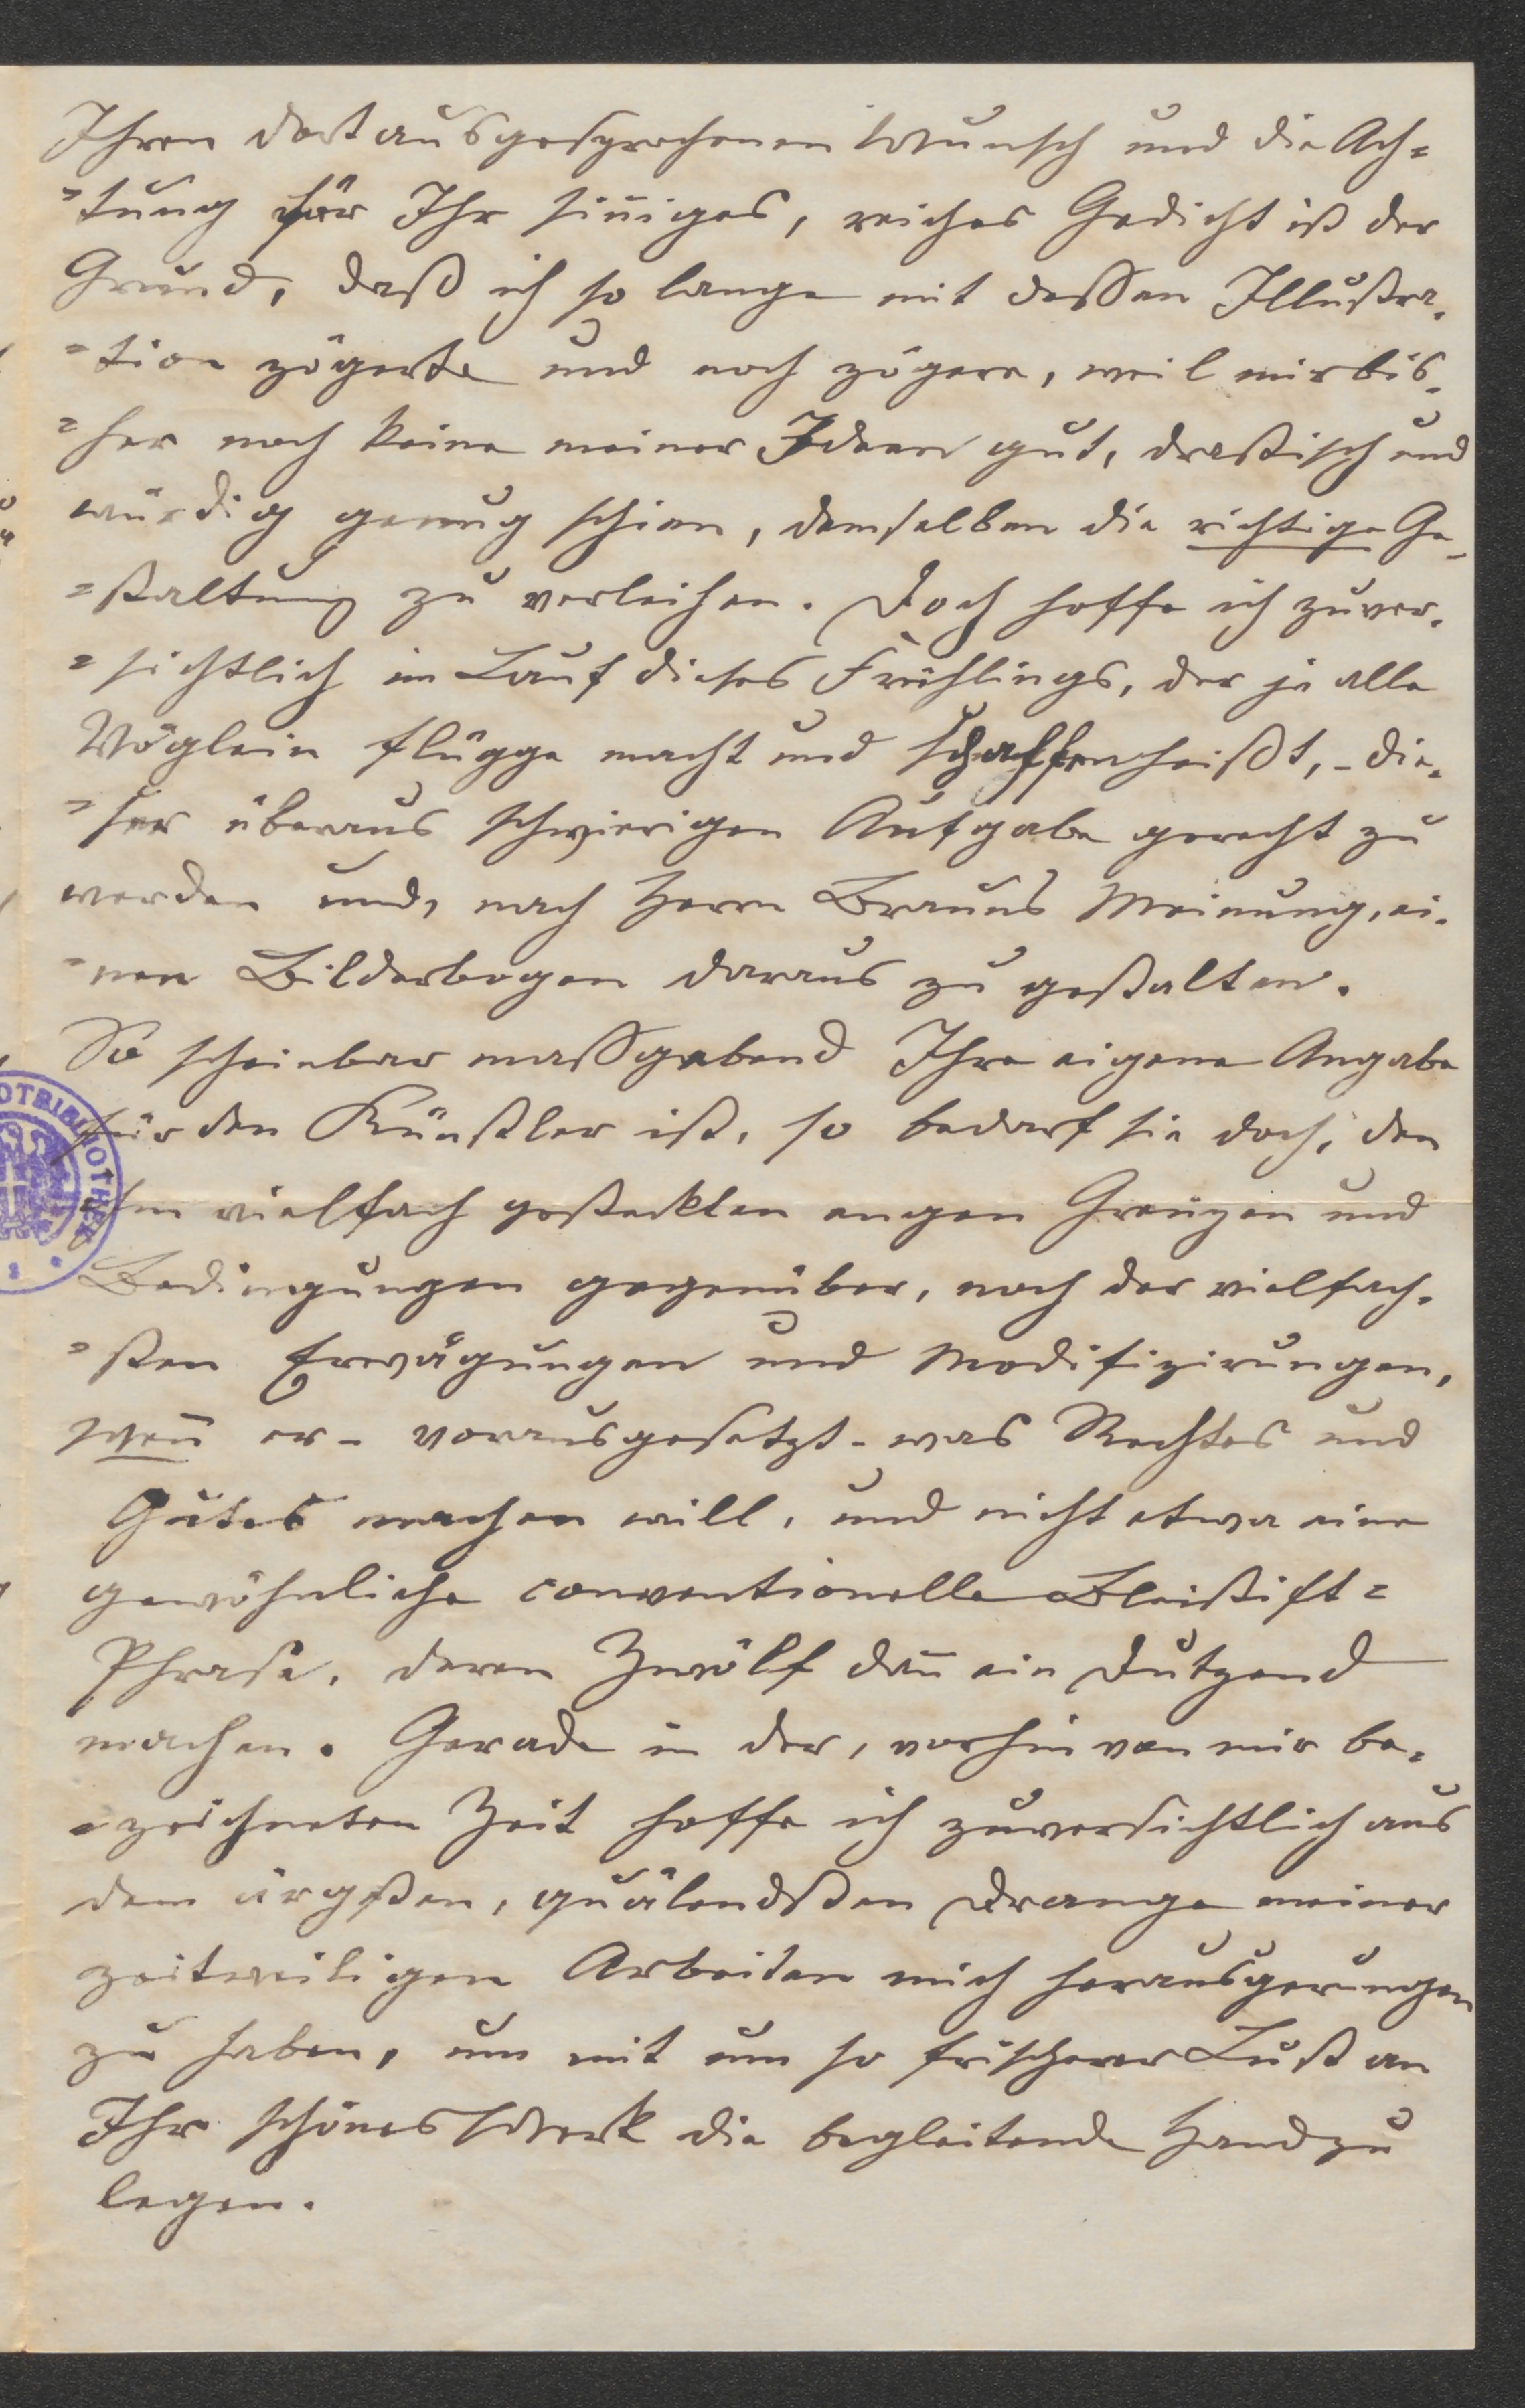 Ihren dort ausgesprochenen Wunsch und die Ach=
=tung für Ihr sin̅iges, reiches Gedicht ist der
Grund, daß ich so lange mit dessen Illustra=
=tion zögerte und noch zögere, weil mir bis=
=her noch keine meiner Ideen gut, drastisch und
würdig genug schien, demselben die richtige Ge=
=staltung zu verleihen. Doch hoffe ich zuver=
=sichtlich im Lauf dieses Frühlings, der ja alle
Vöglein flügge macht und schaffen heißt, - die=
=ser überaus schwierigen Aufgabe gerecht zu
werden und, nach Herrn Brauns Meinung, ei=
=nen Bilderbogen daraus zu gestalten.
So scheinbar massgebend Ihre eigene Angabe
für den Künstler ist, so bedarf sie doch, den
ihm vielfach gesteckten engen Grenzen und
Bedingungen gegenüber, noch der vielfach=
=sten Erwägungen und Modifizirungen,
wen̅ er - vorausgesetzt - was Rechtes und
Gutes machen will, und nicht etwa eine
gewöhnliche conventionelle Bleistift=
Phrase, deren Zwölf dan̅ ein Dutzend
machen. Gerade in der, vorhin von mir be=
=zeichneten Zeit hoffe ich zuversichtlich aus
dem ärgsten, quälendsten Drange meiner
zeitweiligen Arbeiten mich herausgerungen
zu haben, um mit um so frischerer Lust an
Ihr schönes Werk die begleitende Hand zu
legen.